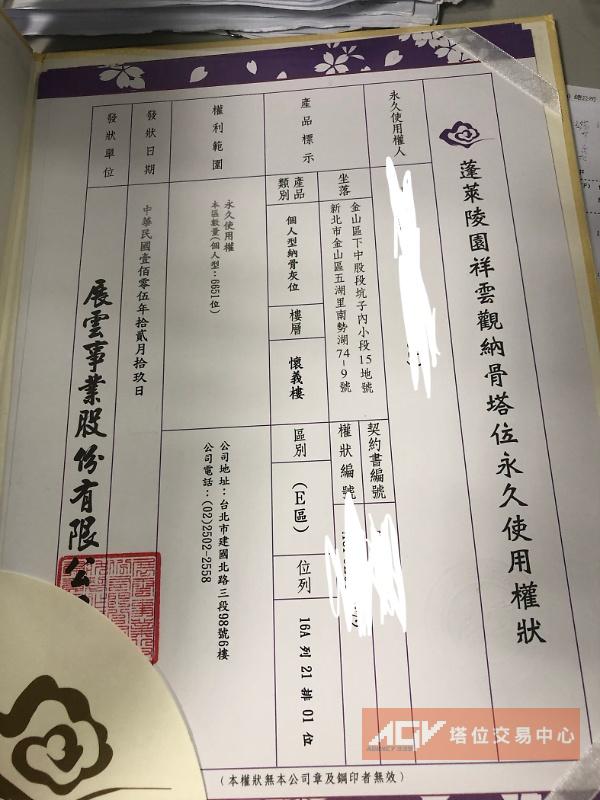 蓬萊陵園祥雲觀納骨塔位永久使用權狀
永久使用權人
契約書編號
權狀編號
產品標示
坐落
金山區下中股段坑子內小段15地號
新北市金山區五湖里南勢湖74-9號
產品類別
個人型納骨灰位
樓層
懷義樓
區別
(E區)
位列
16A 列 21 排 01 位
權利範圍
永久使用權
本區數量(個人型:6651位)
公司地址:台北市建國北路三段98號6樓
公司電話:(02)2502-2558
發狀日期
中華民國壹佰零伍年拾貳月拾玖日
發狀單位
展雲事業股份有限公
(本權狀無本公司章及鋼印者無效)
AGV 塔位交易中心